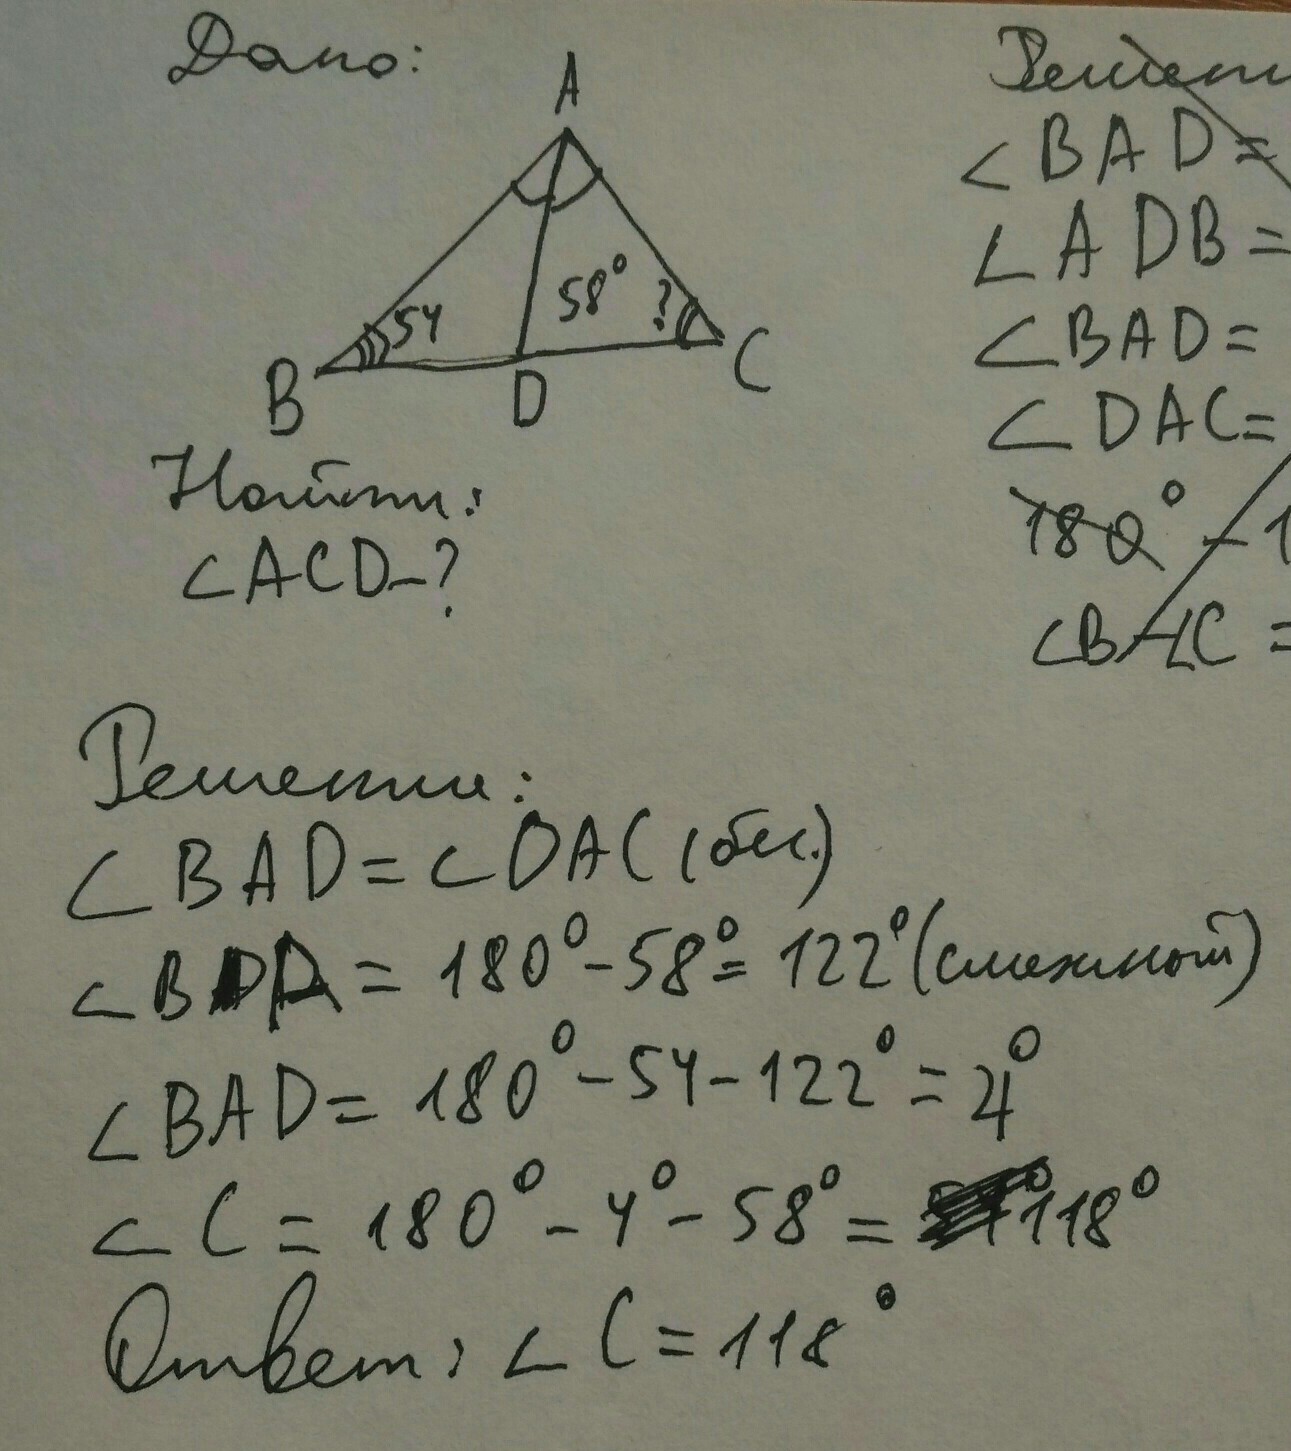 Дано:
A
54
58°
?
B
D
C
Найти:
∠ACD-?
∠BAD=
∠ADB=
∠BAD=
∠DAC=
180° - 1
Решение:
∠BAD=∠DAC (бис.)
∠BDA = 180°-58°= 122° (смежный)
∠BAD= 180°-54-122°=4°
∠C = 180°-4°-58°= 118°
Ответ: ∠C=118°